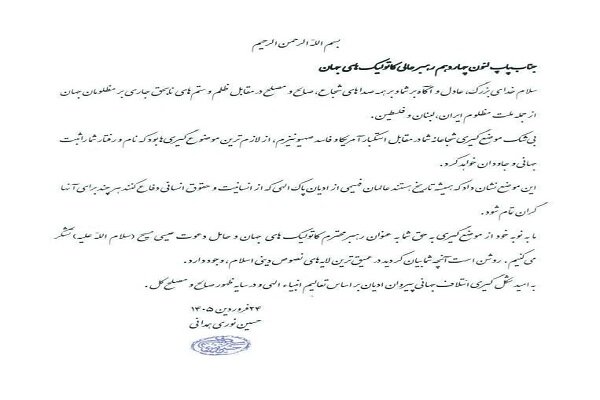 بسم الله الرحمن الرحیم
جناب پاپ لئون چهاردهم رهبر عالی کاتولیک های جهان
سلام خدای بزرگ، عادل و آگاه بر شما و بر همه صداهای شجاع، صالح و مصلح در مقابل ظلم و ستم های ناحق جاری بر مظلومان جهان
از جمله ملت مظلوم ایران، لبنان و فلسطین.
بی شک موضع گیری شجاعانه شما در مقابل استکبار آمریکا و فاسد صهیونیزم، از لازم ترین موضوع گیری ها بود که نام و رفتار شما را ثبت
جهانی و جاودان خواهد کرد.
این موضع نشان داد که همیشه تاریخ هستند عالمان فهیمی از ادیان پاک الهی که از انسانیت و حقوق انسانی دفاع کنند هر چند برای آنها
گران تمام شود.
ما به نوبه خود از موضع گیری به حق شما به عنوان رهبر محترم کاتولیک های جهان و حامل دعوت عیسی مسیح (سلام الله علیه) تشکر
می کنیم. روشن است آنچه شما بیان کردید در عمیق ترین لایه های نصوص دینی اسلام، وجود دارد.
به امید شکل گیری ائتلاف جهانی پیروان ادیان بر اساس تعالیم انبیاء الهی و در سایه ظهور صالح و مصلح کل.
۲۴ فروردین ۱۴۰۵
حسین نوری همدانی